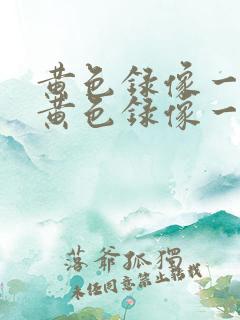 黄色録像一
黄色録像一
落爺孤獨
未经同意禁止转载